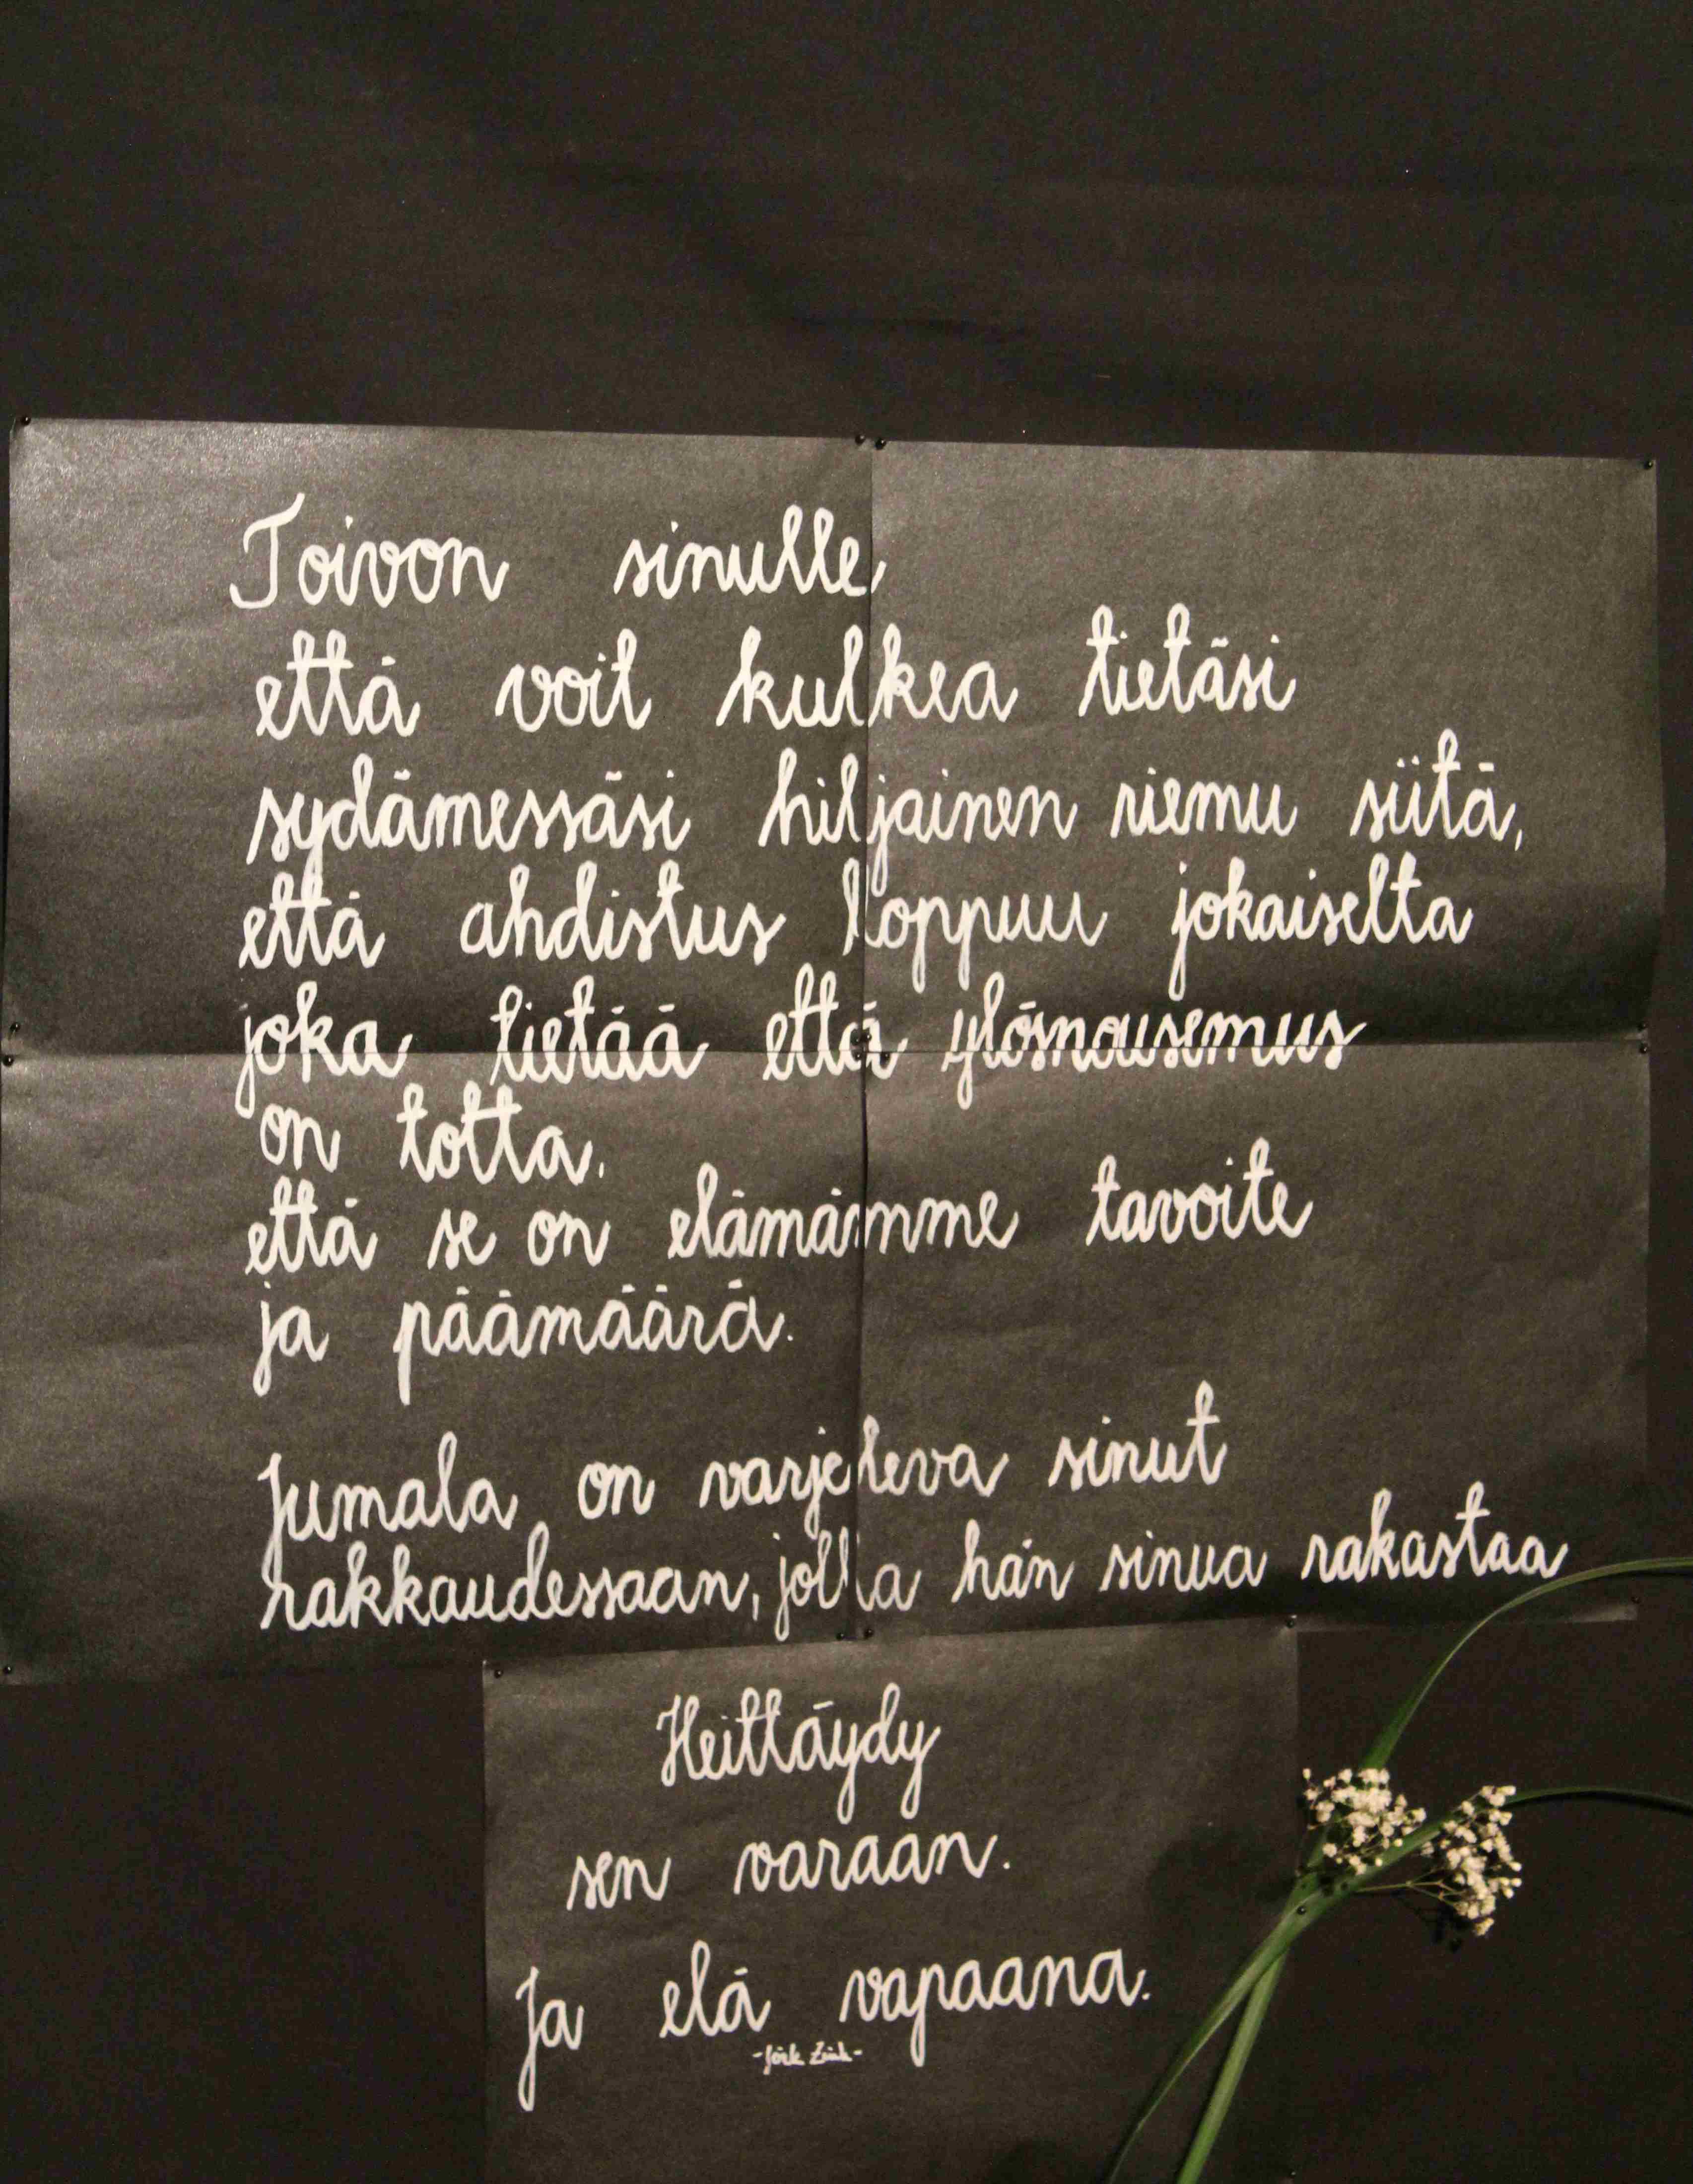 Toivon sinulle,
että voit kulkea tietäsi
sydämessäsi hiljainen riemu siitä,
että ahdistus loppuu jokaiselta
joka tietää että ylösnousemus
on totta.
että se on elämämme tavoite
ja päämäärä.
Jumala on varjeleva sinut
rakkaudessaan, jolla hän sinua rakastaa
Heittäydy
sen varaan.
Ja elä vapaana.
-Jörk Zink-